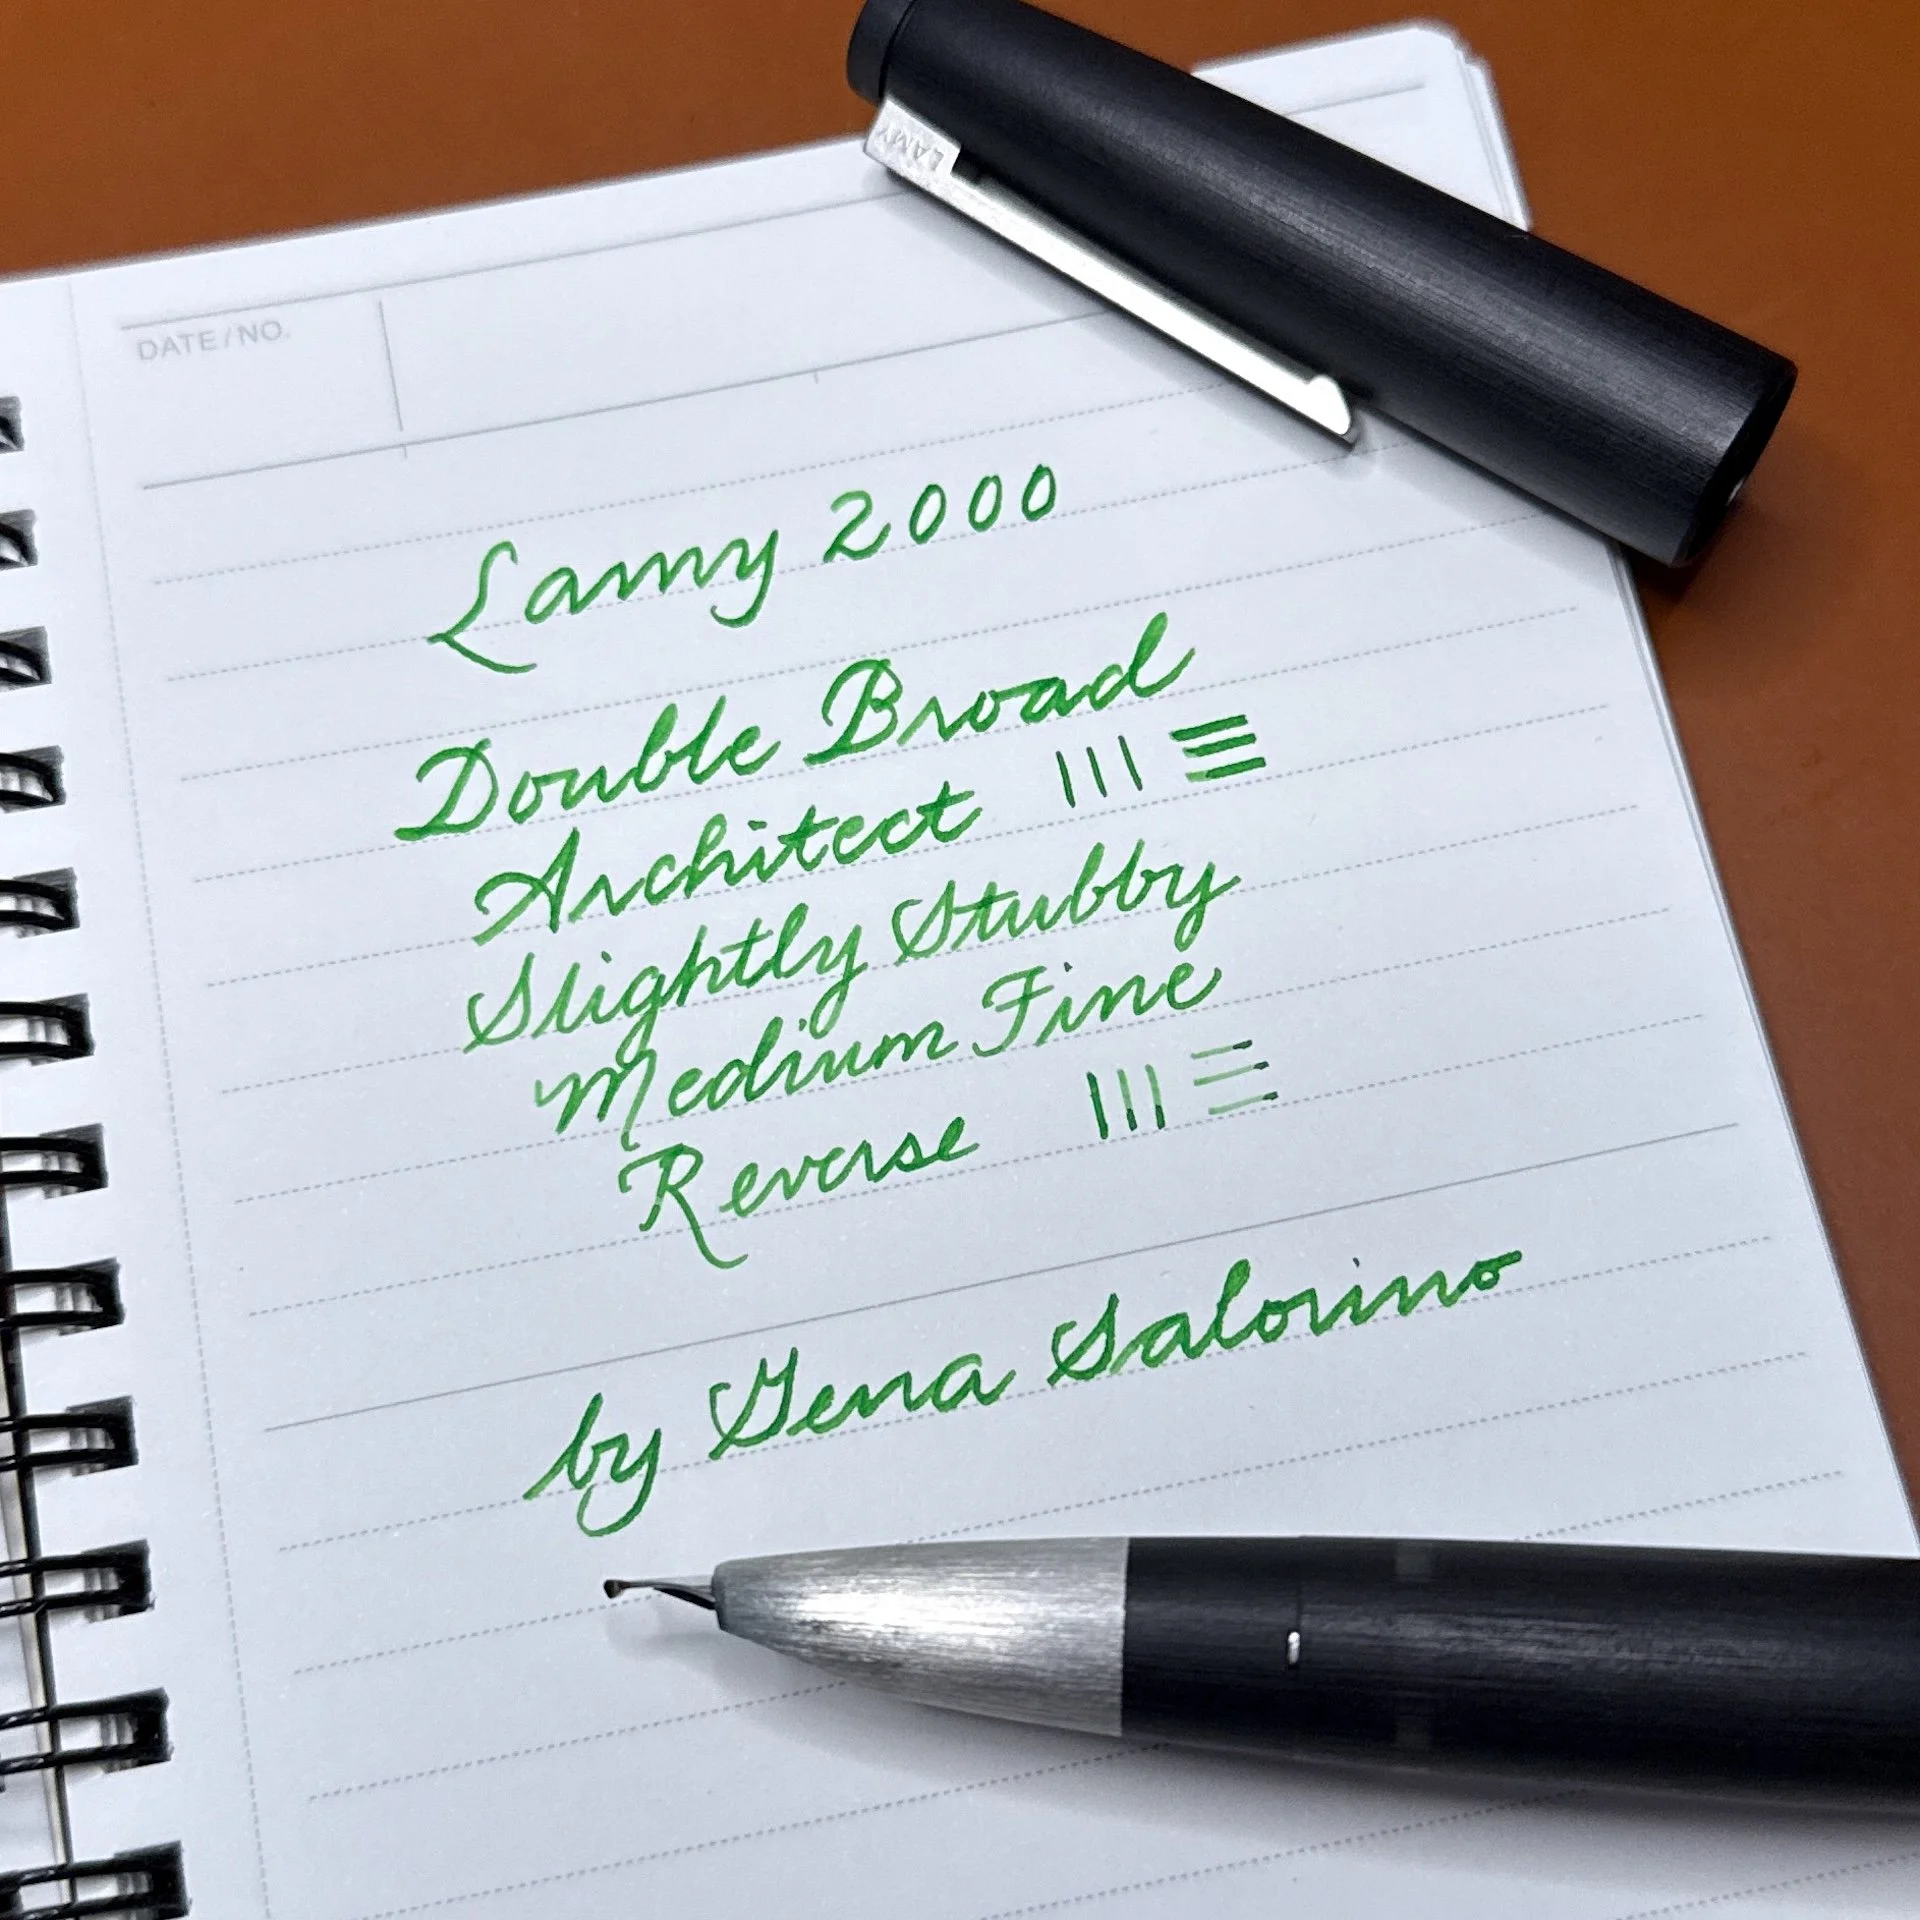 LAMY
DATE/NO.
Lamy 2000
Double Broad
Architect
Slightly Stubby
Medium Fine
Reverse
by Gena Salorino